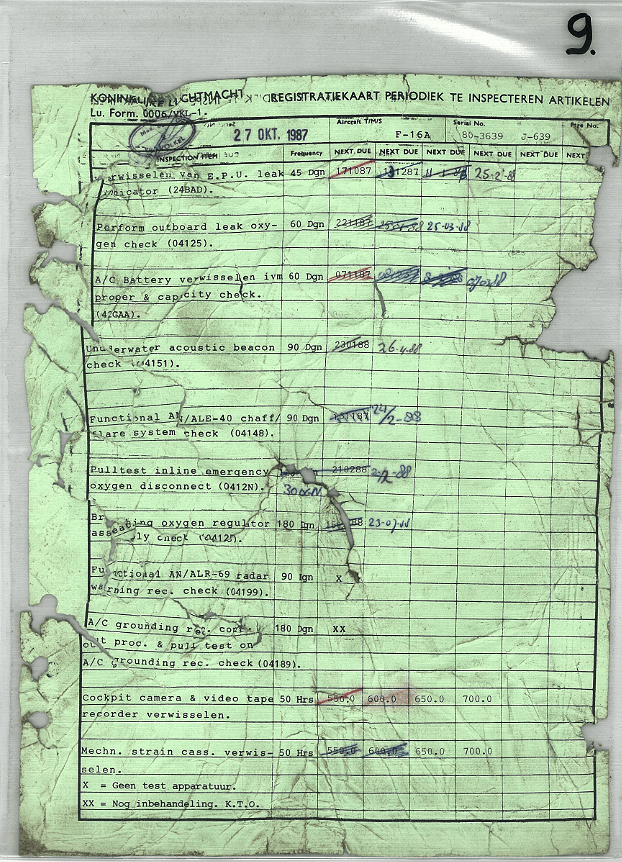 9.
KONINKLIJKE LUCHTMACHT REGISTRATIEKAART PERIODIEK TE INSPECTEREN ARTIKELEN
Lu. Form. 0006/VKL-1.
27 OKT. 1987 Aircraft T/M/S F-16A Serial No. 80-3639 J-639 No.
INSPECTION ITEM Frequency NEXT DUE NEXT DUE NEXT DUE NEXT DUE NEXT DUE NEXT
erwisselen van E.P.U. leak 45 Dgn 171087 1287 25-2-88
indicator (24BAD).
Perform outboard leak oxy- 60 Dgn 221187 25-03-88
gen check (04125).
A/C Battery verwisselen ivm 60 Dgn 071187
proper & capacity check.
(42GAA).
Underwater acoustic beacon 90 Dgn 230188 26-4-88
check (04151).
Functional AN/ALE-40 chaff/ 90 Dgn 24/2-88
flare system check (04148).
Pulltest inline emergency 210288
oxygen disconnect (0412N). 30 DGN
Br ing oxygen regulator 180 Dgn 88 23-07-88
assembly check (0412F).
Functional AN/ALR-69 radar 90 Dgn X
warning rec. check (04199).
A/C grounding rec. 180 Dgn XX
out proc. & pull test on
A/C grounding rec. check (04189).
Cockpit camera & video tape 50 Hrs 550.0 600.0 650.0 700.0
recorder verwisselen.
Mechn. strain cass. verwis- 50 Hrs 550.0 600.0 650.0 700.0
selen.
X = Geen test apparatuur.
XX = Nog inbehandeling. K.T.O.